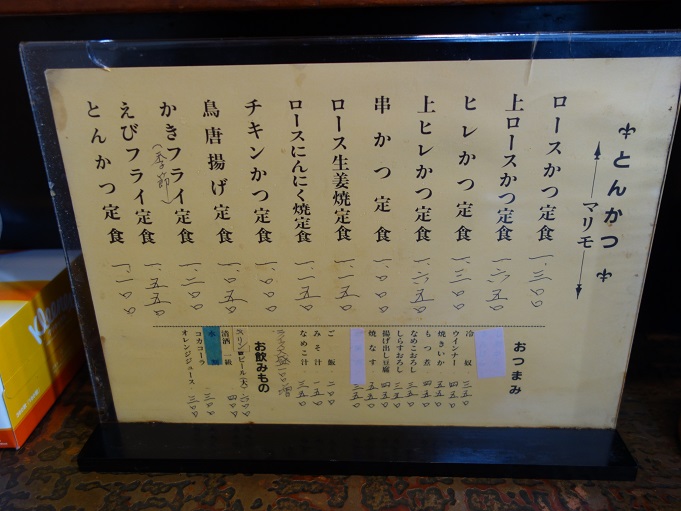 とんかつ
マリモ
ロースかつ定食 一、三〇〇
上ロースかつ定食 一、六五〇
ヒレかつ定食 一、三〇〇
上ヒレかつ定食 一、六五〇
串かつ定食 一、〇五〇
ロース生姜焼定食 一、一五〇
ロースにんにく焼定食 一、一五〇
チキンかつ定食 一、〇〇〇
鳥唐揚げ定食 一、〇五〇
かきフライ定食 一、二〇〇
(季節)
えびフライ定食 一、五五〇
とんかつ定食 一、一〇〇
おつまみ
冷奴 三五〇
ウインナー 四五〇
焼きいか 四五〇
もつ煮 四五〇
なめこおろし 三五〇
しらすおろし 三五〇
揚げ出し豆腐 四五〇
焼なす 三五〇
ご飯 二〇〇
みそ汁 一五〇
なめこ汁 三五〇
お飲みもの
キリンビール(大) 六〇〇
清酒 一級 四〇〇
コカコーラ 三〇〇
オレンジジュース 三〇〇
Kleenex